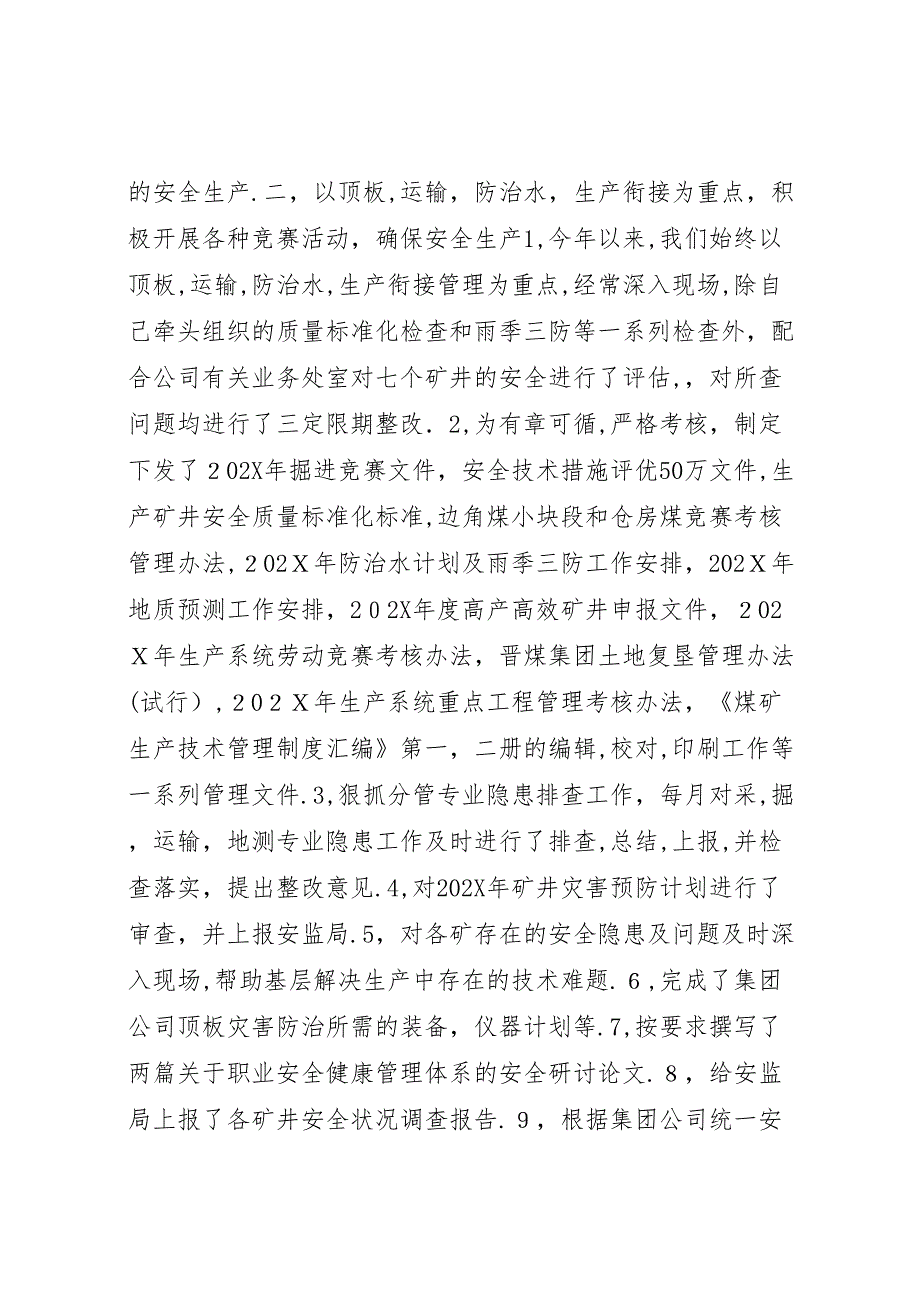 的安全生产.二，以顶板,运输，防治水，生产衔接为重点，积
极开展各种竞赛活动，确保安全生产1,今年以来,我们始终以
顶板,运输,防治水,生产衔接管理为重点,经常深入现场,除自
己牵头组织的质量标准化检查和雨季三防等一系列检查外，配
合公司有关业务处室对七个矿井的安全进行了评估,，对所查
问题均进行了三定限期整改．2,为有章可循,严格考核，制定
下发了２02X年掘进竞赛文件，安全技术措施评优50万文件,生
产矿井安全质量标准化标准,边角煤小块段和仓房煤竞赛考核
管理办法,２02Ｘ年防治水计划及雨季三防工作安排，202Ｘ年
地质预测工作安排，２０２X年度高产高效矿井申报文件，２０２
Ｘ年生产系统劳动竞赛考核办法，晋煤集团土地复垦管理办法
(试行）,２０２Ｘ年生产系统重点工程管理考核办法，《煤矿
生产技术管理制度汇编》第一，二册的编辑,校对,印刷工作等
一系列管理文件.3,狠抓分管专业隐患排查工作，每月对采,掘
，运输，地测专业隐患工作及时进行了排查,总结,上报,并检
查落实，提出整改意见.4,对202X年矿井灾害预防计划进行了
审查，并上报安监局.5，对各矿存在的安全隐患及问题及时深
入现场,帮助基层解决生产中存在的技术难题.６,完成了集团
公司顶板灾害防治所需的装备，仪器计划等.7,按要求撰写了
两篇关于职业安全健康管理体系的安全研讨论文.８，给安监
局上报了各矿井安全状况调查报告.９，根据集团公司统一安